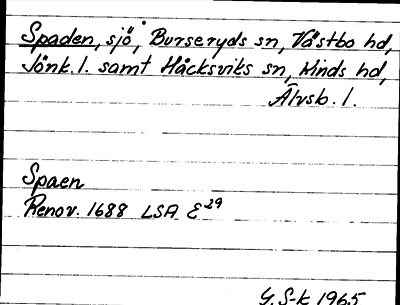 Spaden, sjö, Burseryds sn, Västbo hd,
Jönk. l. samt Håcksviks sn, Kinds hd,
Älvsb. l.
Spaen
Renov. 1688 LSA E29
G. S-k 1965